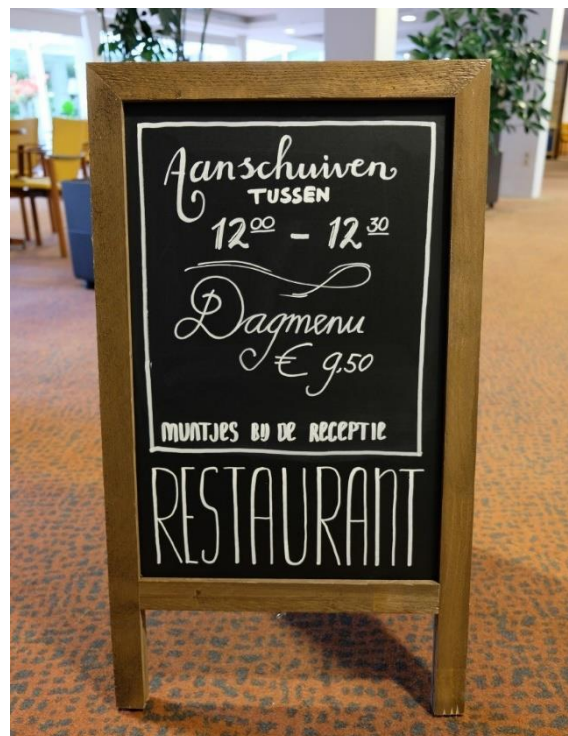 Aanschuiven
TUSSEN
12⁰⁰ - 12³⁰
Dagmenu
€ 9.50
MUNTJES BIJ DE RECEPTIE
RESTAURANT